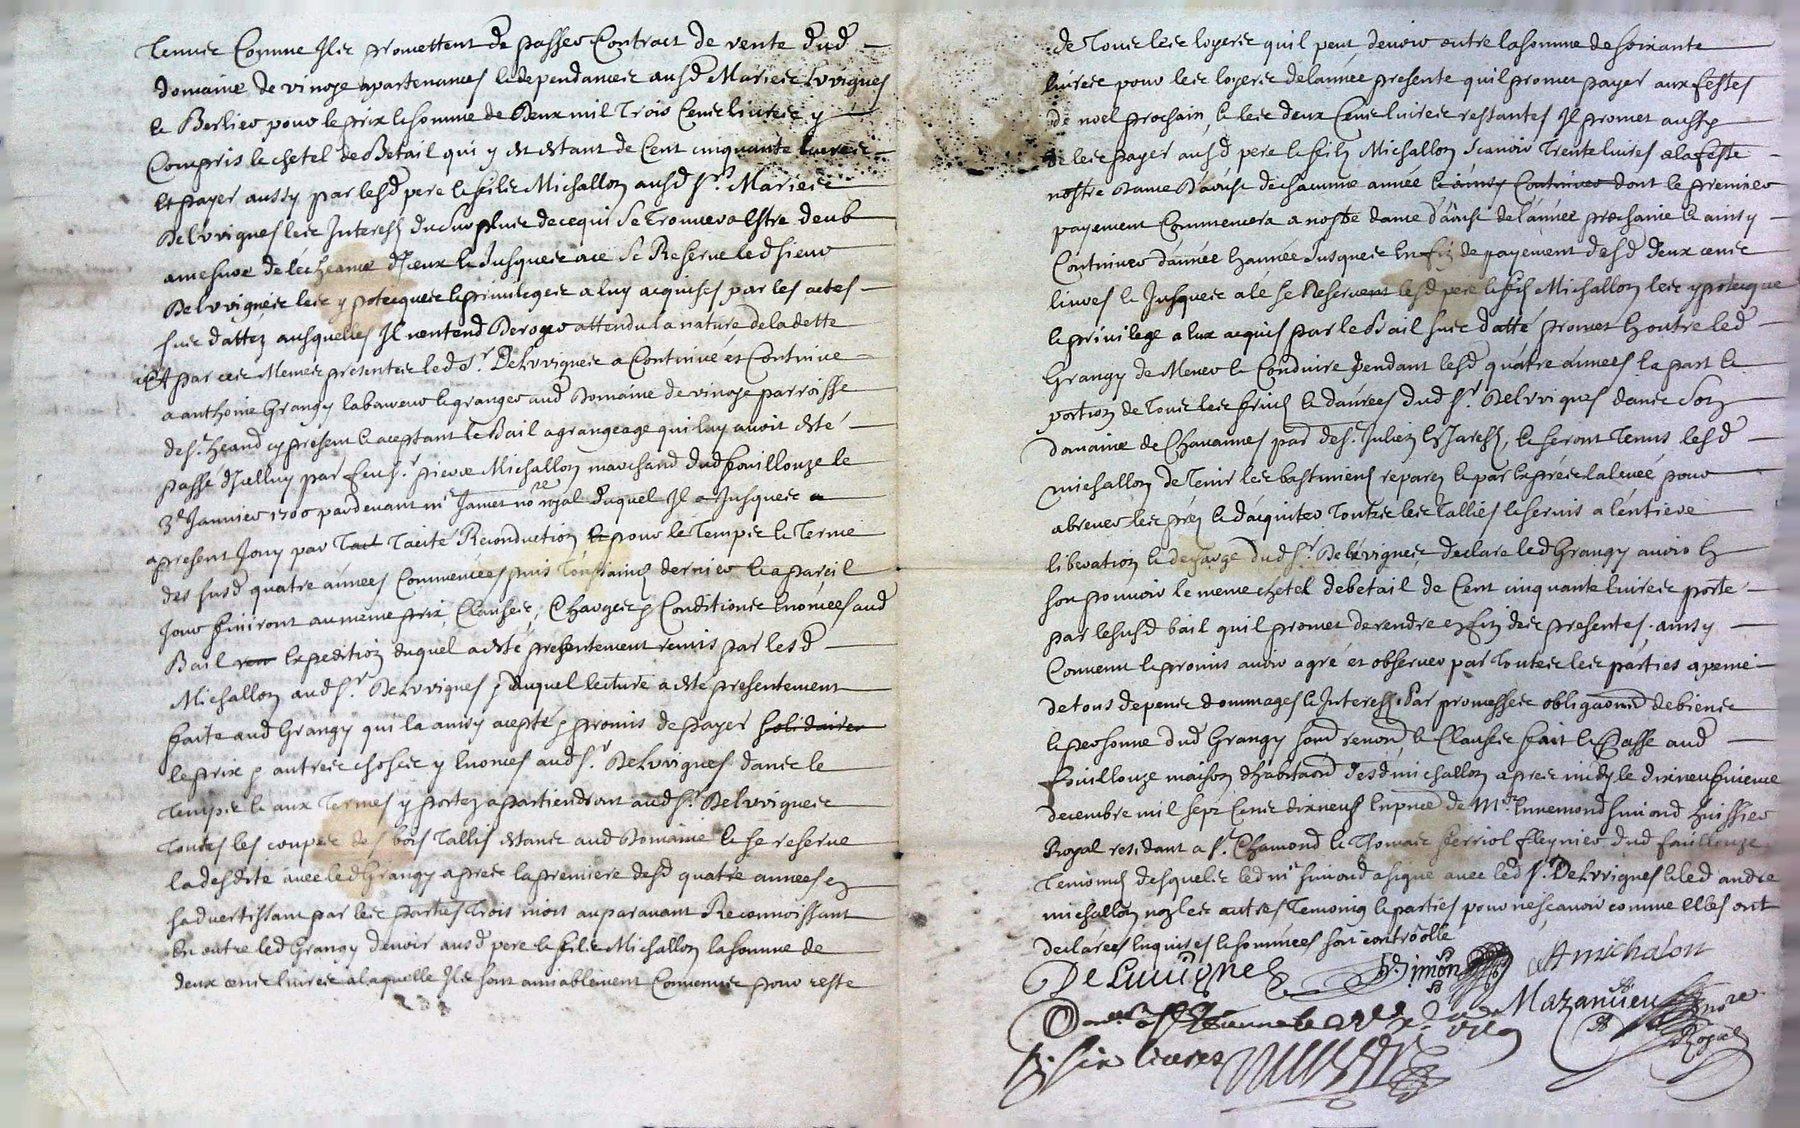 Tenue Comme Ils promettent de passer Contract de vente dud
domaine de vinose apartenances & dependances ausd Mariés Lvvignes
& Berlier pour le prix & somme de Deux mil Trois Cens livres y
Compris le chetel de Betail qui y est estant de Cent cinquante livres
Et payer aussy par lesd pere & fils Michallon ausd Sr Mariés
Delvvignes les Interests du surplus de ce qui se trouvera estre deub
amesure de jceux & Jusques ace Se Reserve led sieur
Delvvignes les ypotecques & privileges a luy acquises par les actes
sus dattez ausquelles Il nentend Deroger attendu la nature de la dette
Et par ces Memes presentes led Sr Delvvignes a Continué et Continue
a anthoine Grangy laboureur & granger aud Domaine de vinose parroisse
de St heand cy present & aceptant le Bail a grangeage qui luy avoit esté
passé d'Jcelluy par feu Sr pierre Michallon marchand dud fouillouze le
3e Janvier 1700 pardevant me Jamet nore royal duquel Il a Jusques a
apresent Jouy par Tact Tacite Reconduction & pour le Temps & Terme
des susd quatre années Commencées puis Toussaincts dernier & a pareil
Jour finiront au meme prix, Clauses, Charges & Conditions Enoncées aud
Bail Expedition duquel a esté presentement remis par lesd
Michallon aud Sr Delvvignes & duquel lecture a esté presentement
faite aud Grangy qui la ainsy acepté & promis de payer solidairer
le prix & autres choses y Enoncés aud Sr Delvvignes dans le
Temps & aux Termes y portez apartiendront aud Sr Delvvignes
Toutes les coupes des bois Tallis estans aud Domaine & se reserve
la desdite avec led Grangy apres la premiere desd quatre années en
sadvertissant par les parties Trois mois auparavant Reconnoissant
En outre led Grangy devoir ausd pere & fils Michallon la somme de
deux cens livres a laquelle Ils sont amiablement Convenus pour reste
de Tous les loyers quil peut devoir outre la somme de soixante
livres pour les loyers de lannée presente quil promet payer aux festes
de noel prochain, & les deux Cens livres restantes Il promet aussy
de les payer ausd pere & fils Michallon scavoir Trente livres a la feste
nostre Dame Daoust de chacune année & ainsy Continuer dont le premier
payement Commencera a nostre dame daoust de lannée prochaine & ainsy
Continuer dannée En année Jusques En fin de payement desd deux cens
livres & Jusques a lé se Reservent lesd pere & fils Michallon les ypotecque
& privilege a eux acquis par le Bail sus datté promet En outre led
Grangy de Mener & Conduire pendant lesd quatre années la part &
portion de Tous les fruits & danrées dud Sr Delvvignes dans Son
domaine de Chavannes par de St Julien En Jarest, & seront Tenus lesd
michallon de Tenir les bastiments reparez & par la levée pour
abrever les prez & dacquiter Toutes les Tallies & servis a lentiere
liberation & decharge dud Sr Delvvignes, declare led Grangy avoir En
son pouvoir le meme chetel de betail de Cent cinquante livres porté
par le susd bail quil promet de rendre en fin des presentes. ainsy
Convenu & promis avoir agré et observer par Toutes les parties a peine
de tous depens dommages & Interests Par promesses obligaons de biens
& personne dud Grangy soumd renond & Clauses fait & Passé aud
fouillouze maison dhabitaon desd michallon apres midy le dixneufvieme
decembre mil sept Cens dixneuf En pnce de Mr Ennemond Simond huissier
Royal residant a St Chamond & Thomas ferriol fleynier dud fouillouze
Temoins desquels led mr Simond a signé avec led Sr Delvvignes & led andré
michallon non les autres Temoins & parties pour ne scavoir comme elles ont
declarées Enquises & sommées soit controllé
De Luuignes Simon A michalon
Mazanvieu nore Royal
six livres